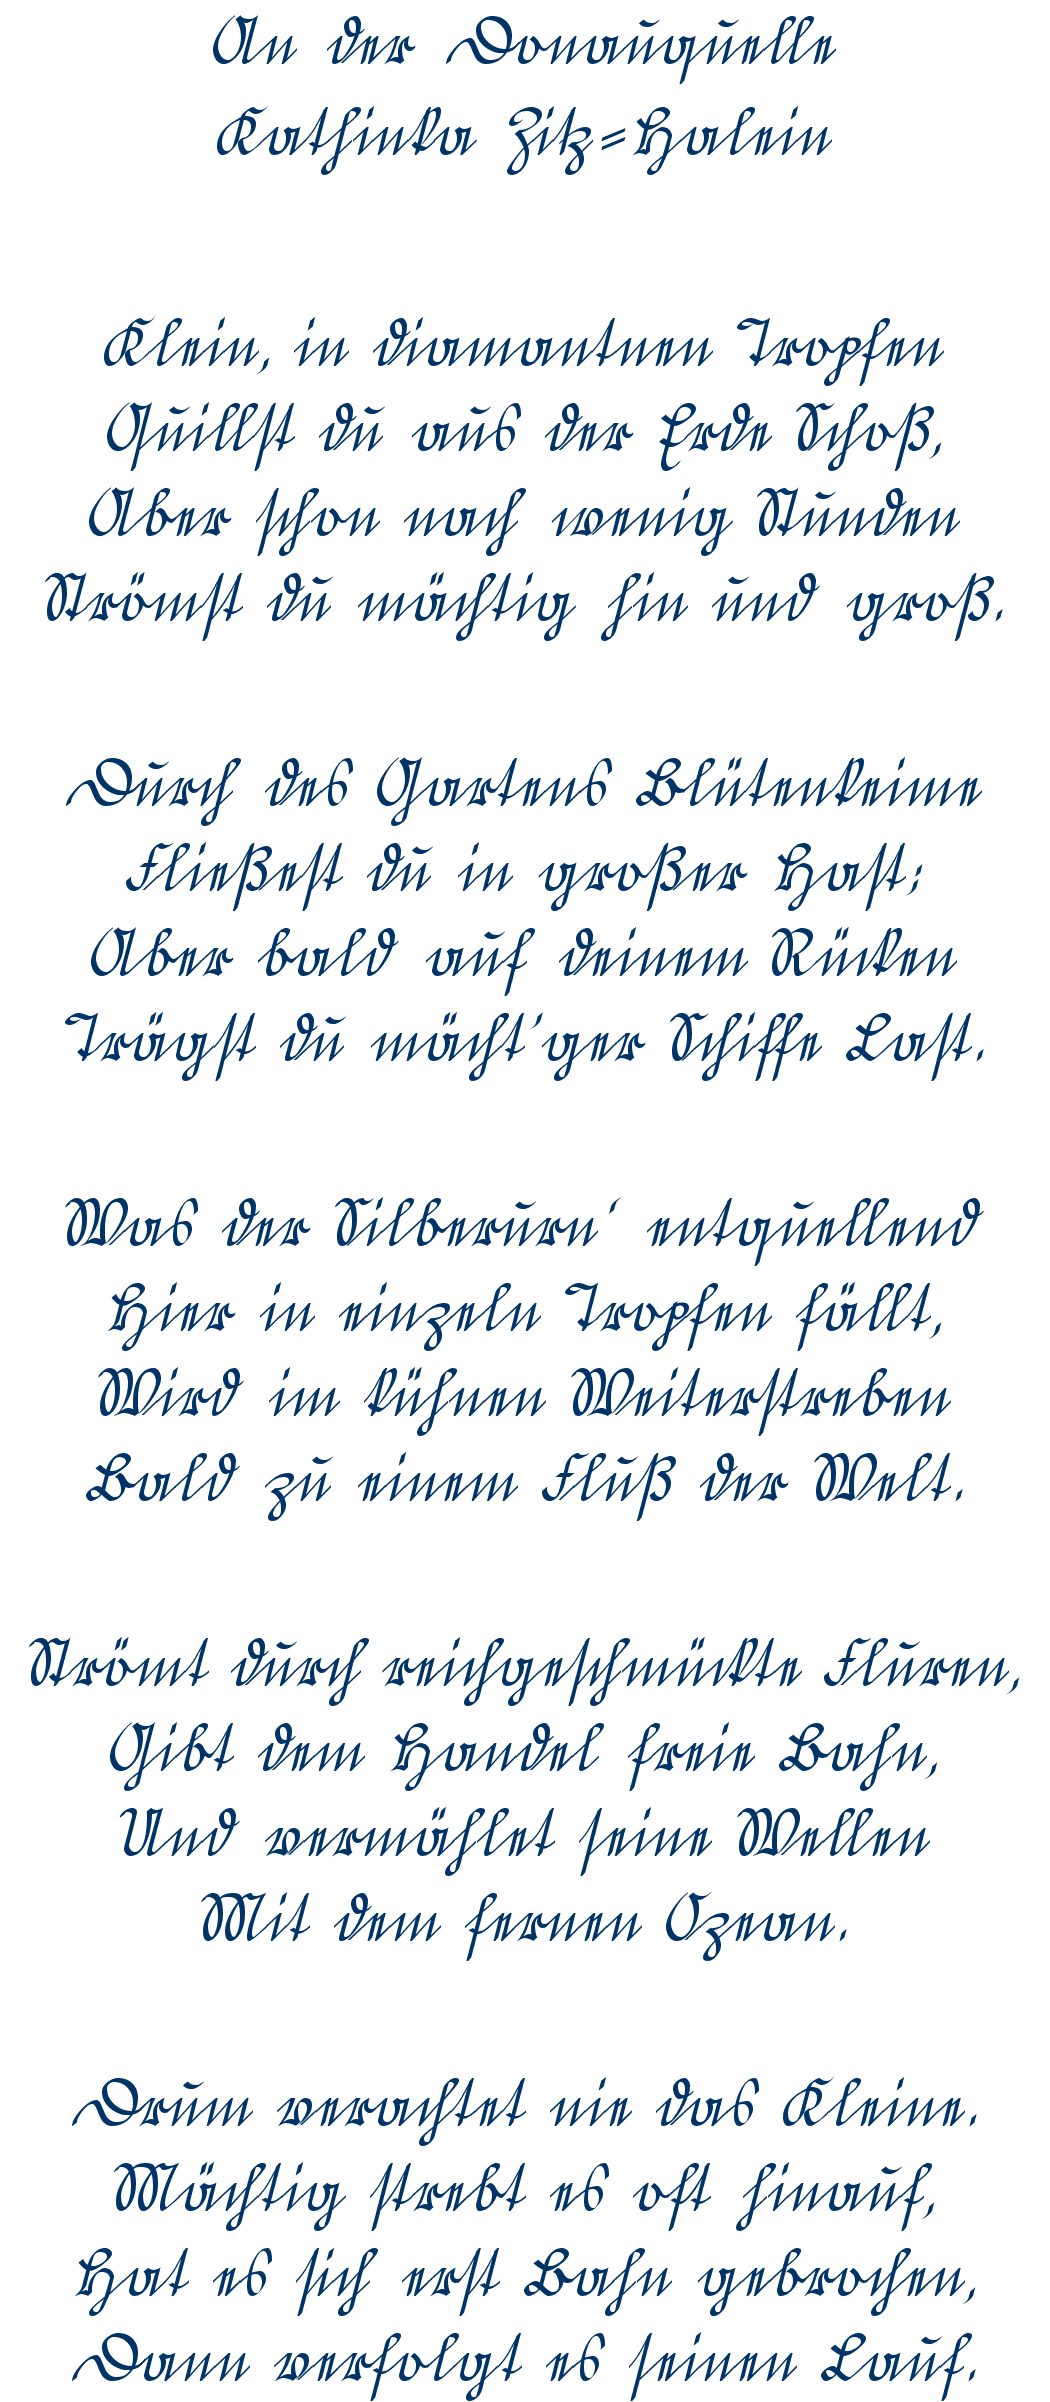 An der Donauquelle
Kathinka Zitz=Halein
Klein, in diamantnen Tropfen
Quillst du aus der Erde Schoß,
Aber schon nach wenig Stunden
Strömst du mächtig hin und groß.
Durch des Gartens Blütenkeime
Fließest du in großer Hast;
Aber bald auf deinem Rücken
Trägst du mächt'ger Schiffe Last.
Was der Silberurn' entquellend
Hier in einzeln Tropfen fällt,
Wird im kühnen Weiterstreben
Bald zu einem Fluß der Welt.
Strömt durch reichgeschmückte Fluren,
Gibt dem Handel freie Bahn,
Und vermählet seine Wellen
Mit dem fernen Ozean.
Drum verachtet nie das Kleine.
Mächtig strebt es oft hinauf,
Hat es sich erst Bahn gebrochen,
Dann verfolgt es seinen Lauf.